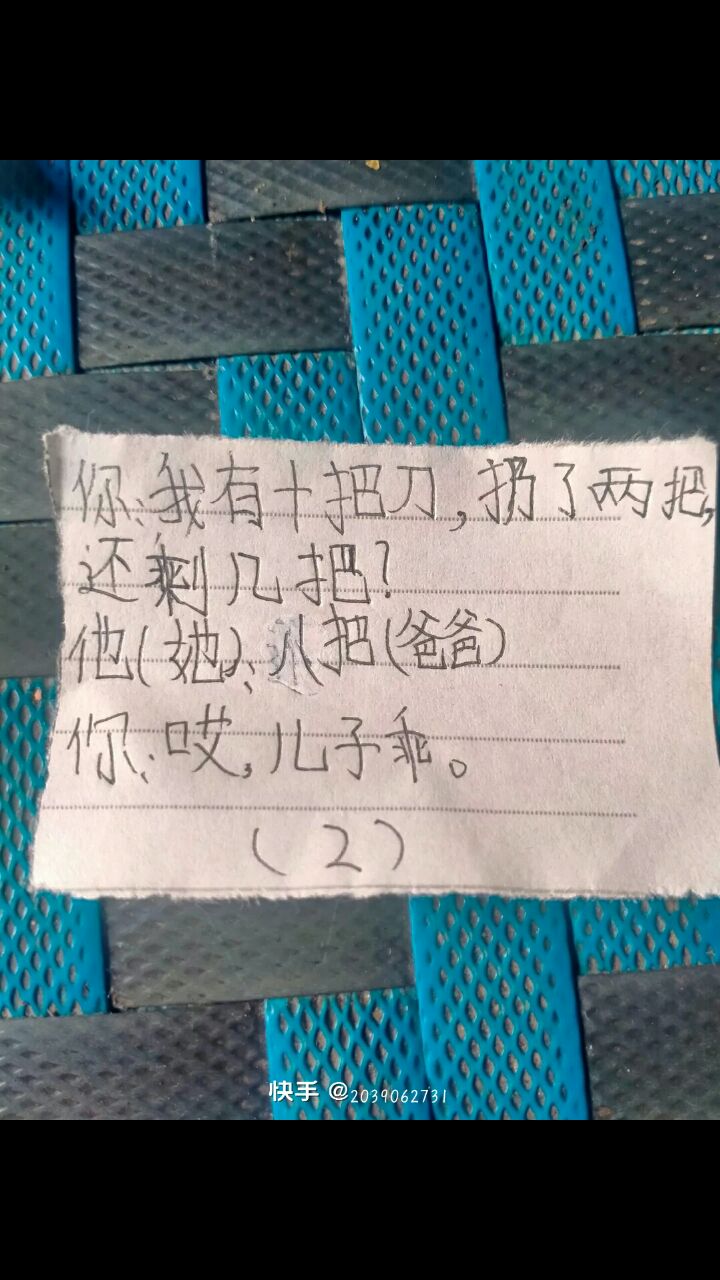 你:我有十把刀,扔了两把,
还剩几把?
他(她):八把(爸爸)
你:哎,儿子乖。
(2)
快手 @2039062731